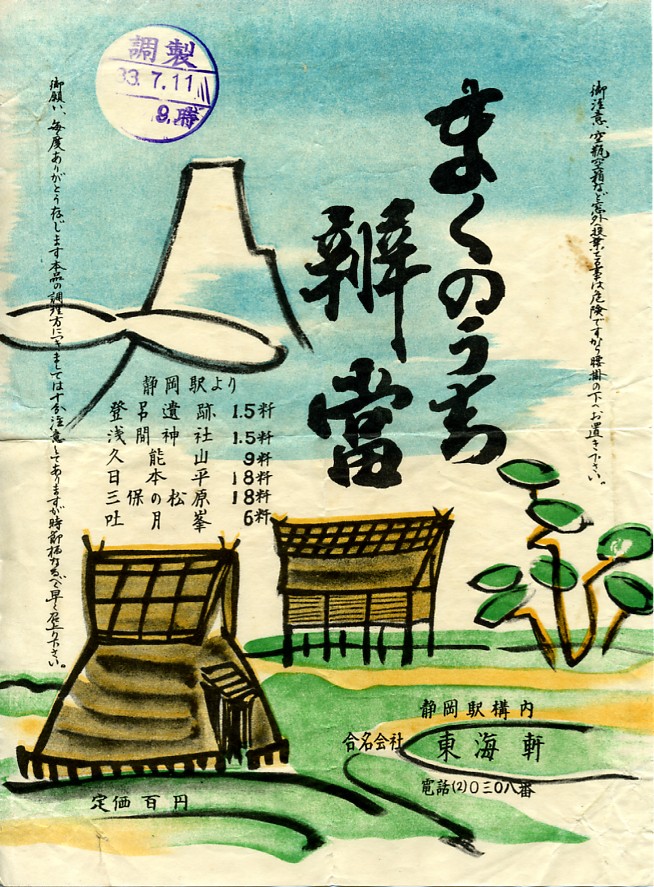 御注意、空瓶空箱など窓外投棄する事は危険ですから腰掛の下へお置き下さい。
まくのうち
辨當
調製
33.7.11
静岡駅より
登呂遺跡 1.5粁
浅間神社 1.5粁
久能山 9粁
日本平 18粁
三保の松原 18粁
吐月峯 6粁
御願い、毎度ありがとう存じます本品の調理方につきましては十分注意してありますが時節柄なるべく早く召上り下さい。
静岡駅構内
合名会社 東海軒
電話(2)〇三〇八番
定価百円